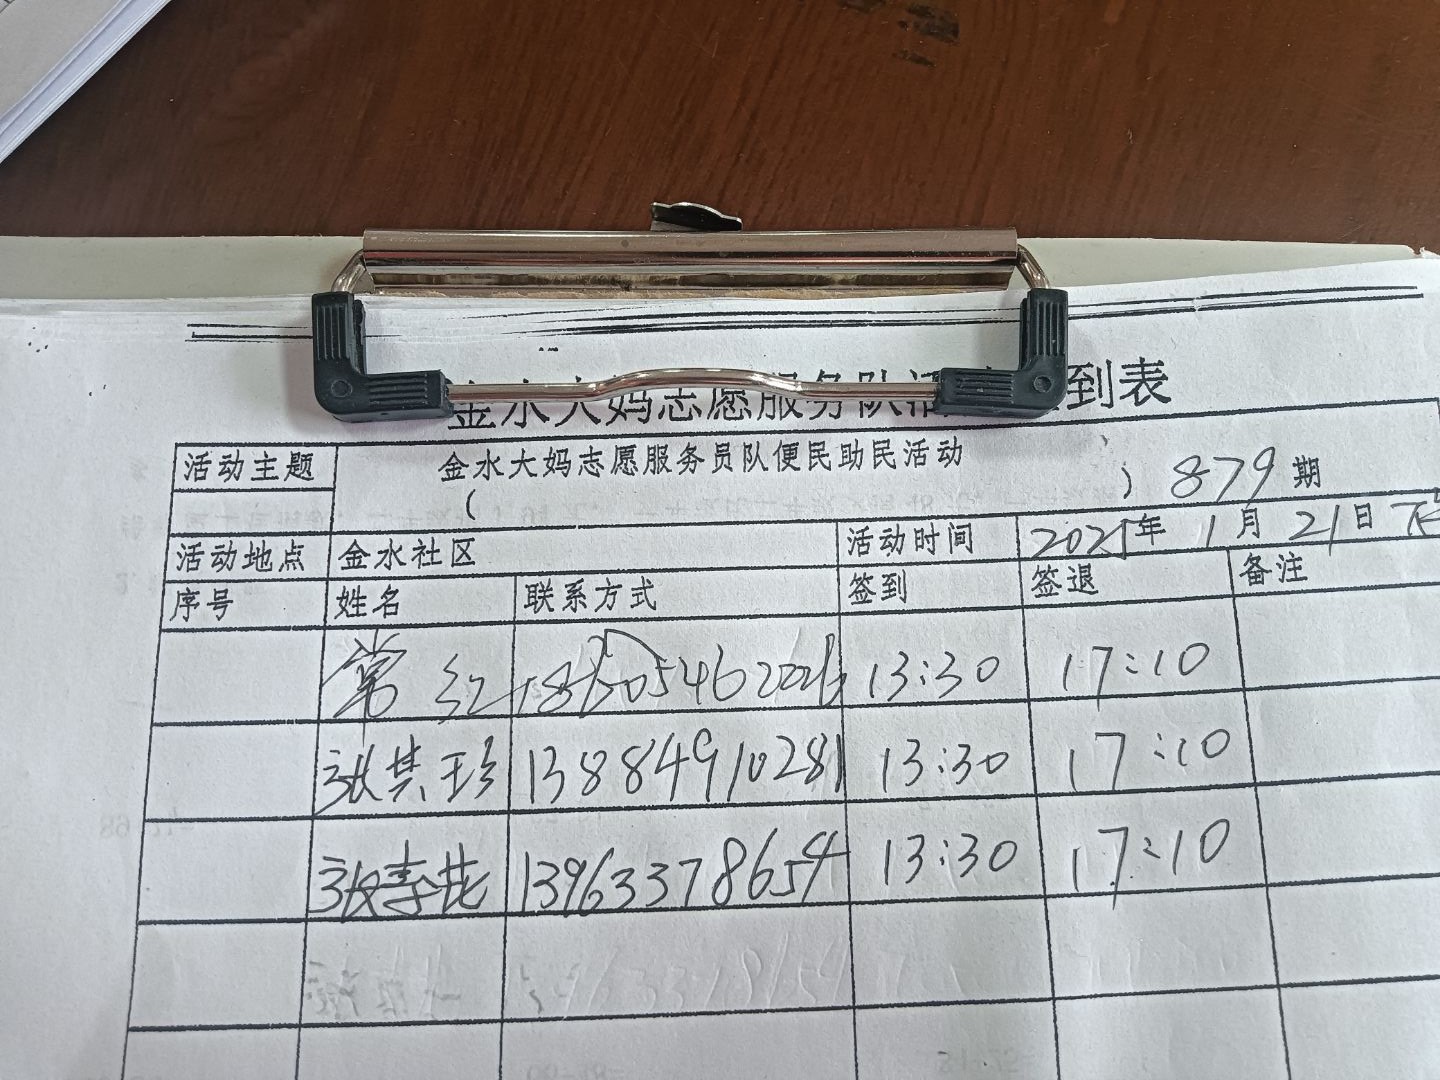 金水大妈志愿服务队活 到表
活动主题 金水大妈志愿服务员队便民助民活动
( ) 879期
活动地点 金水社区 活动时间 2021年1月21日下
序号 姓名 联系方式 签到 签退 备注
常红 13:30 17:10
张其珍 13884910281 13:30 17:10
张春花 13963378654 13:30 17:10